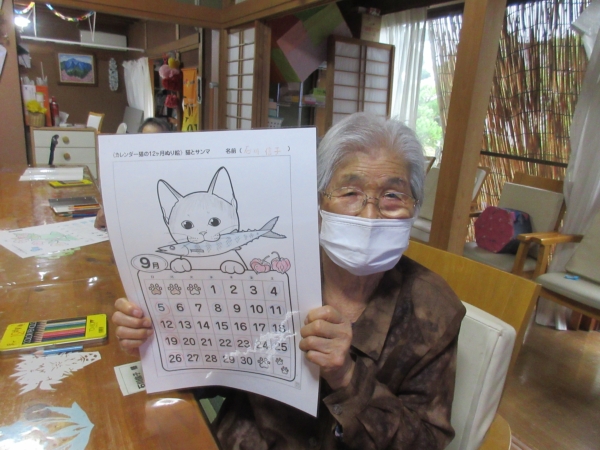 (カレンダー猫の12ヶ月ぬり絵) 猫とサンマ 名前(
9月
1 2 3 4
5 6 7 8 9 10 11
12 13 14 15 16 17 18
19 20 21 22 23 24 25
26 27 28 29 30